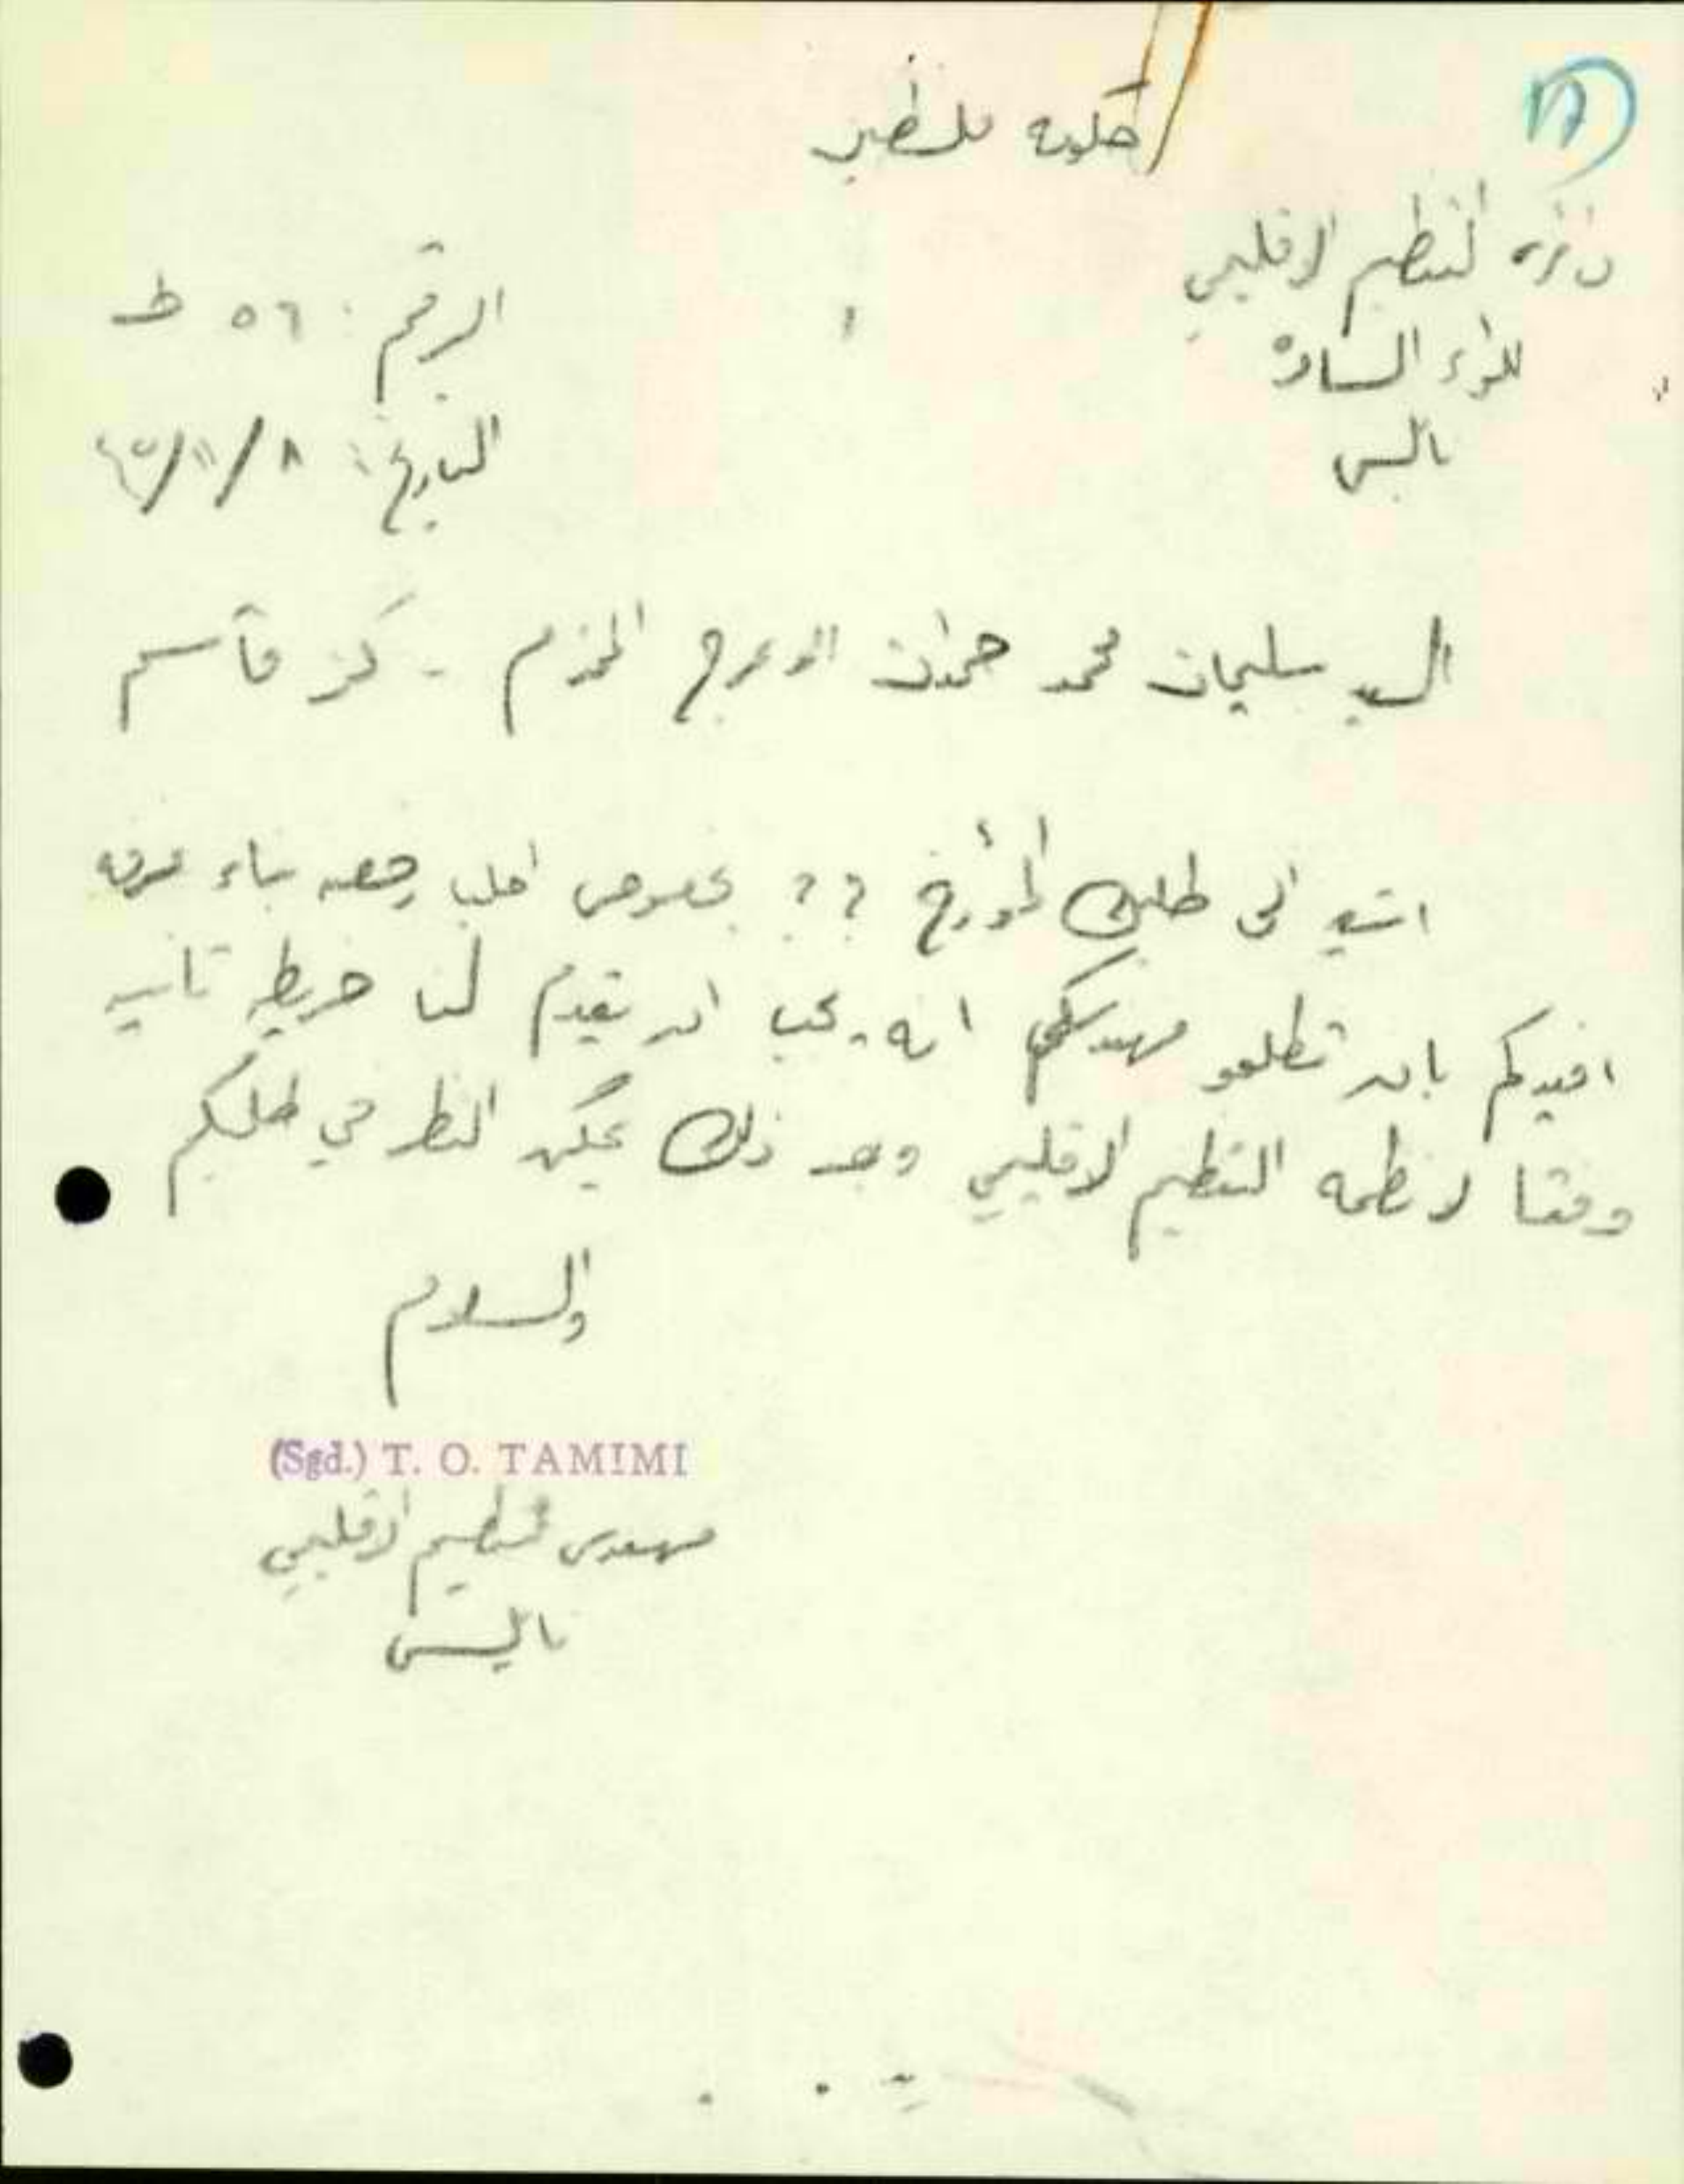 حكومة فلسطين
دائرة التنظيم الاقليمي
للواء السامرة
نابلس
الرقم: ٥٦ ط
التاريخ: ٨/١١/٤٥
السيد سليمان محمد حمدان الاعرج المحترم - كفر قاسم
اشير الى طلبك المؤرخ ؟؟ بخصوص اعطاء رخصه بناء غرفه
افيدكم بان تطلعو مهندسكم انه يجب ان يقدم لنا خريطه ثانيه
وفقا لانظمه التنظيم الاقليمي وبعد ذلك يمكن النظر في طلبكم
والسلام
(Sgd.) T. O. TAMIMI
مهندس تنظيم الاقليمي
نابلس